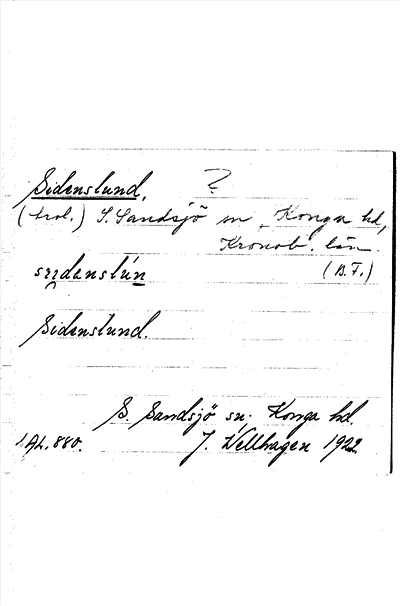 Sidenslund, ?
(trol.) S. Sandsjö sn, Konga hd,
Kronob. län.
(B.F.)
Sidenslund.
S. Sandsjö sn. Konga hd.
AL. 880. J. Wellhagen 1922